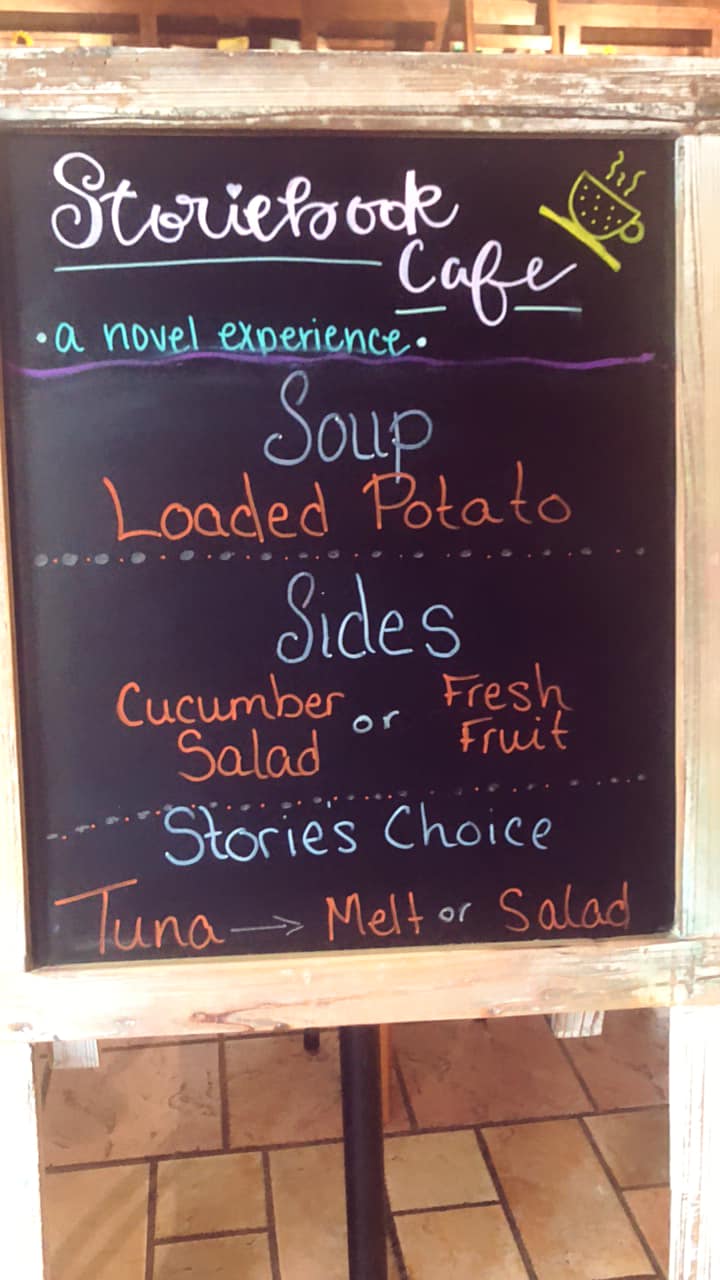 Storiebook
Cafe
•a novel experience•
Soup
Loaded Potato
Sides
Cucumber or Fresh
Salad Fruit
Storie's Choice
Tuna → Melt or Salad